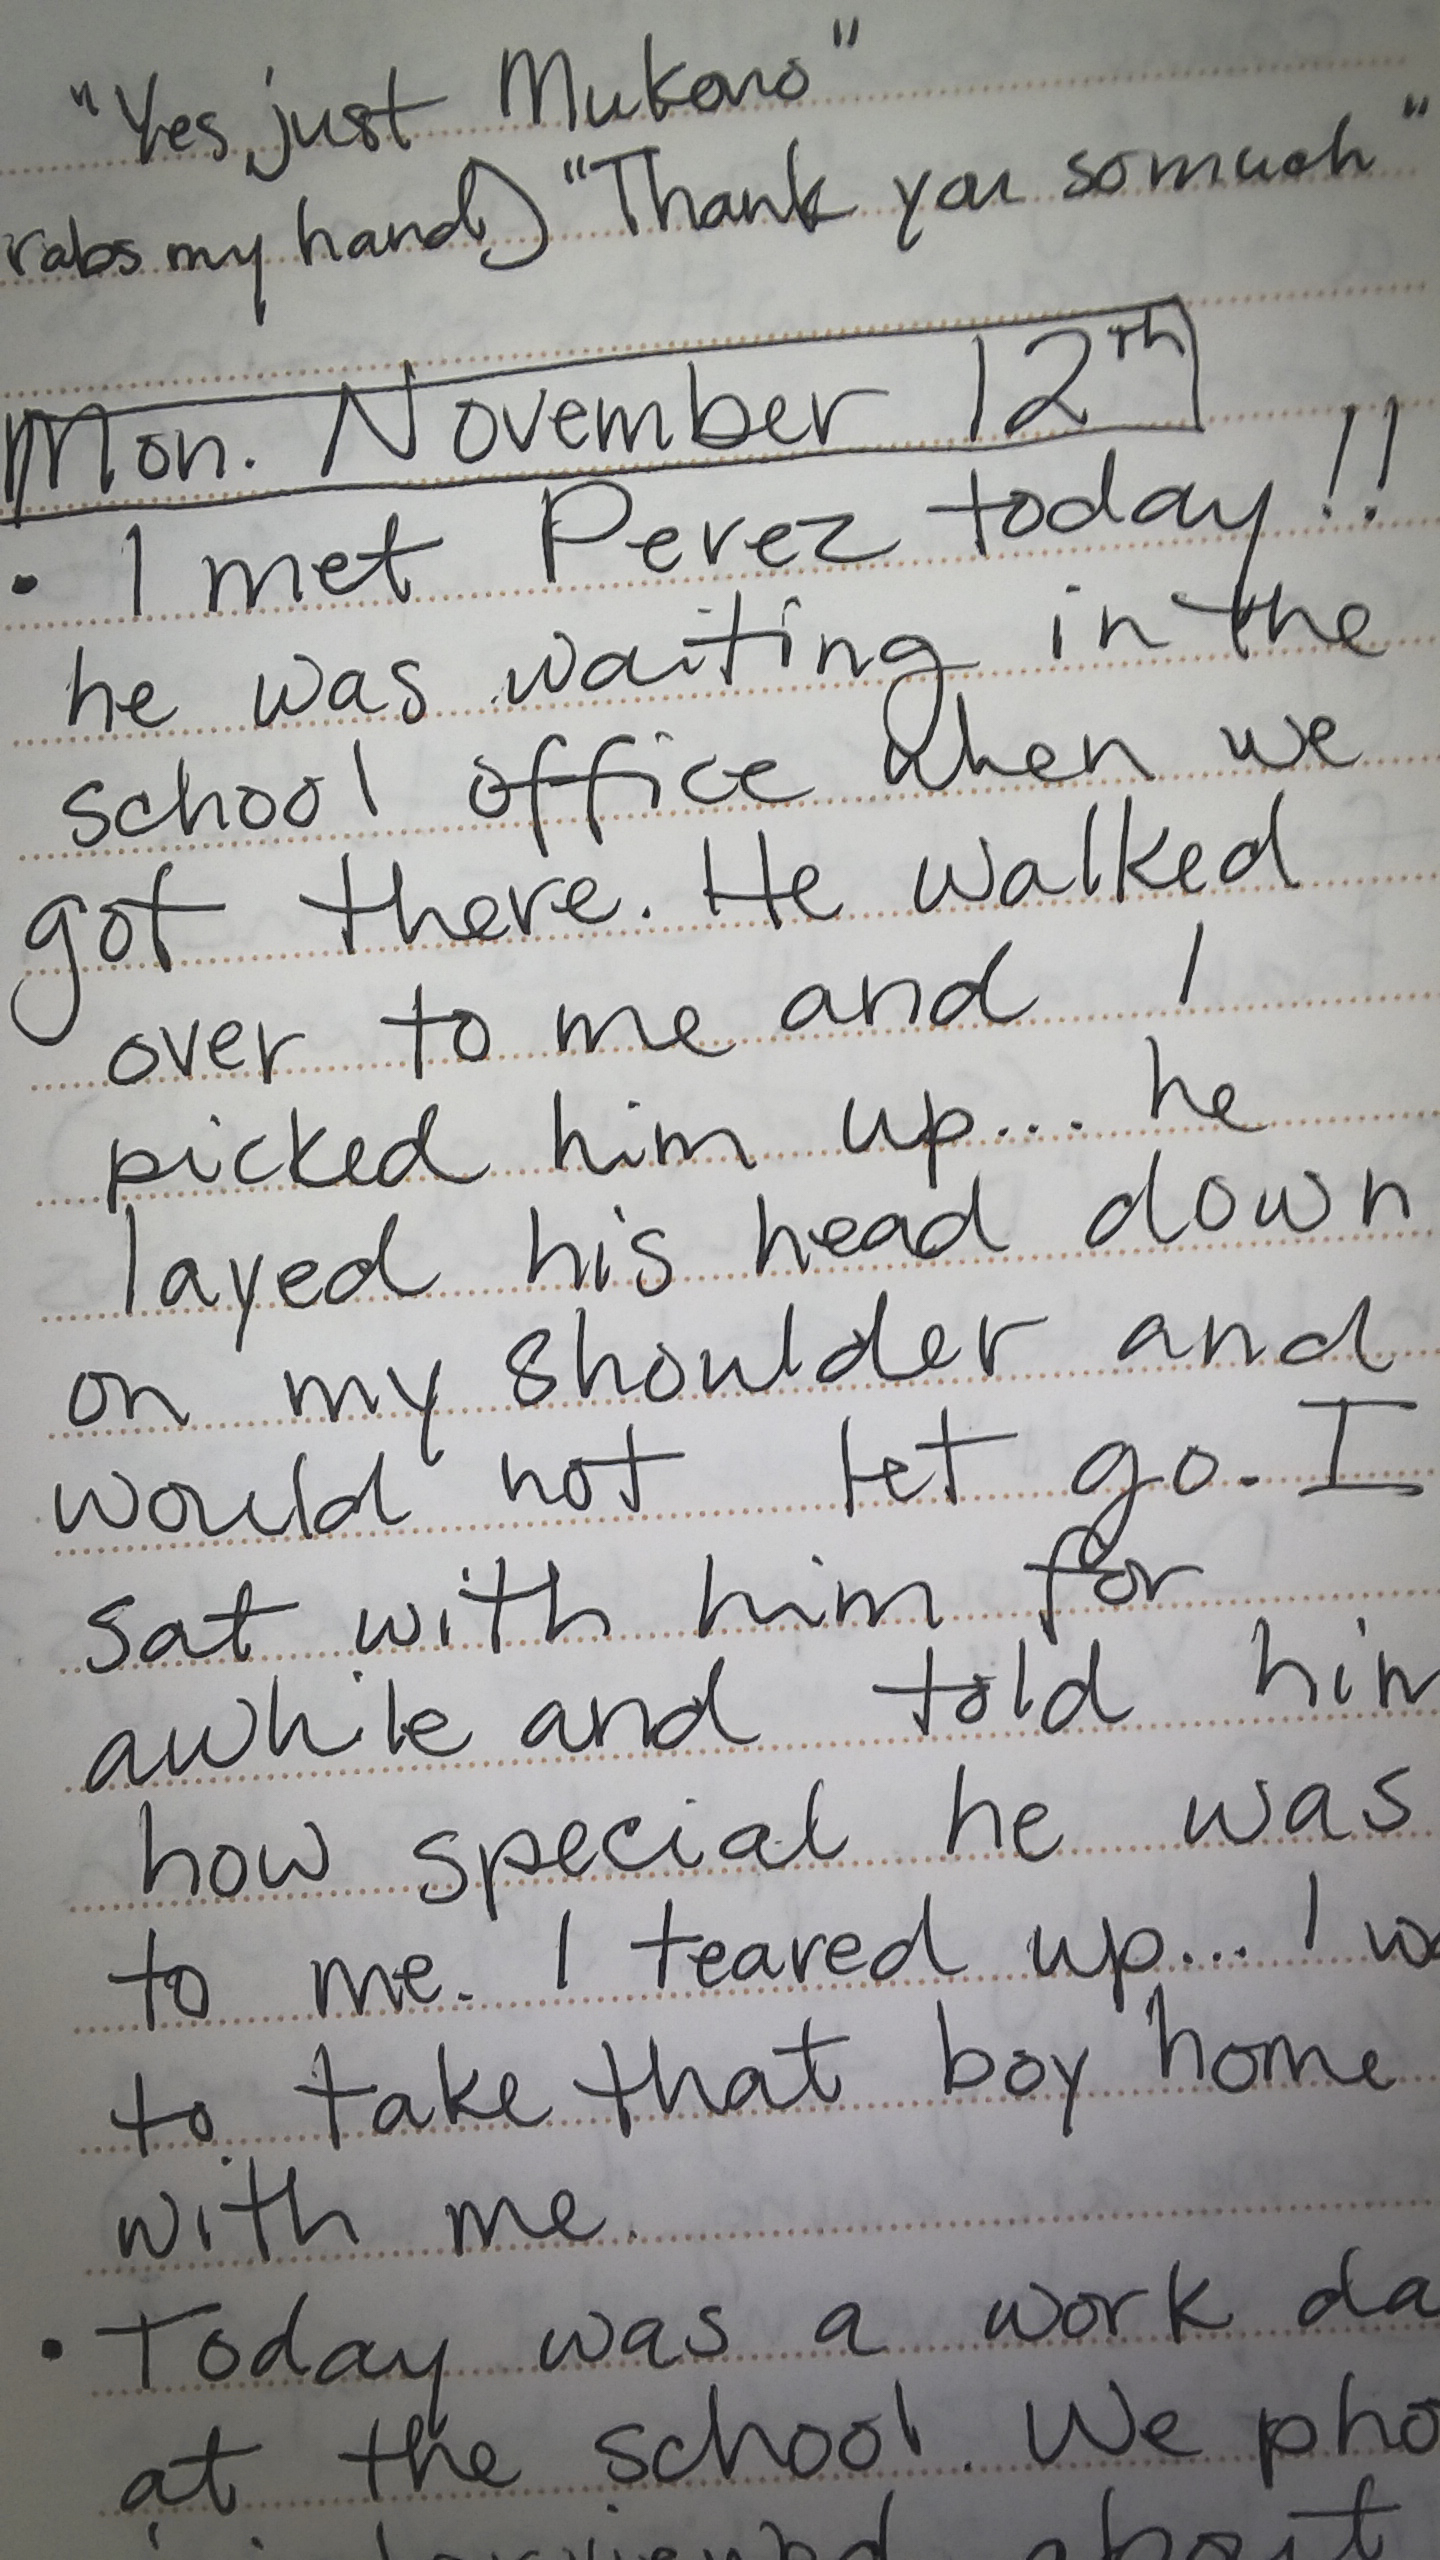 "Yes, just Mukono"
rabs my hand) "Thank you so much"
Mon. November 12th
• I met Perez today!!
he was waiting in the
school office when we
got there. He walked
over to me and I
picked him up... he
layed his head down
on my shoulder and
would not let go. I
sat with him for
awhile and told him
how special he was
to me. I teared up... I wa
to take that boy home
with me.
• Today was a work da
at the school. We pho
about